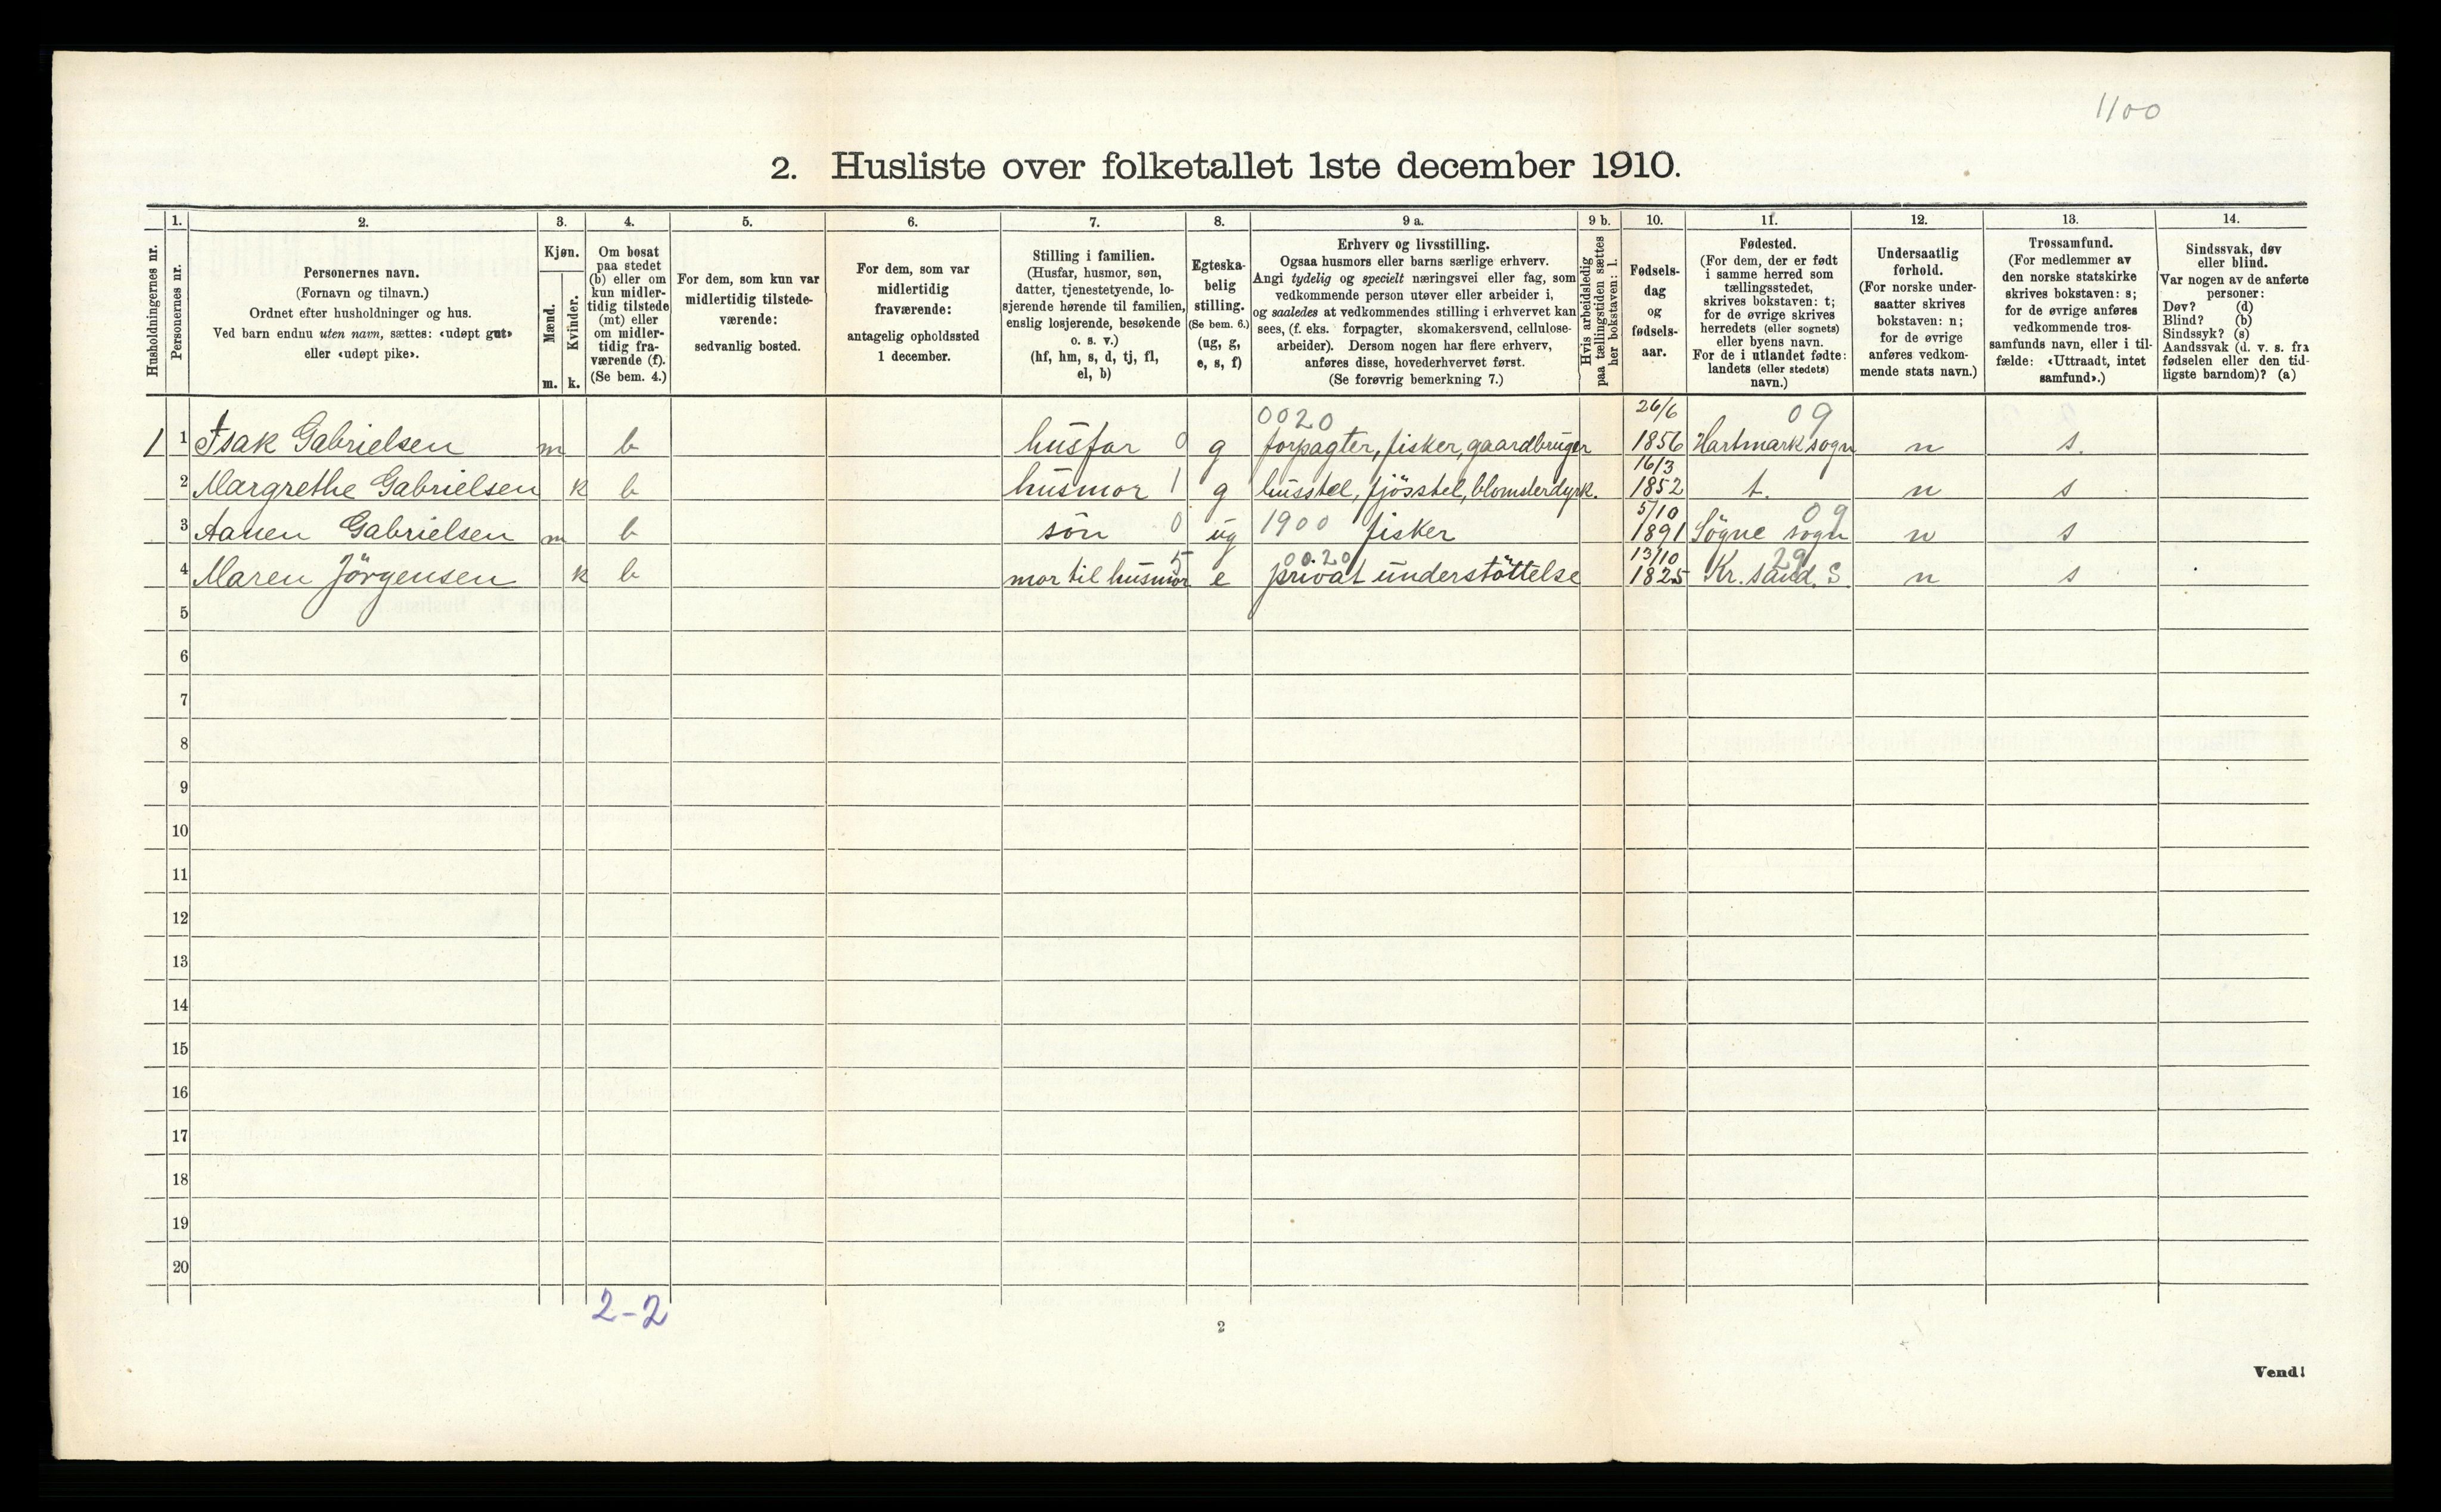 1100
2. Husliste over folketallet 1ste december 1910.
Husholdningernes nr.
1.
Personernes nr.
2.
Personernes navn.
(Fornavn og tilnavn.)
Ordnet efter husholdninger og hus.
Ved barn endnu uten navn, sættes: «udøpt gut»
eller «udøpt pike».
3.
Kjøn.
Mænd.
Kvinder.
m. k.
4.
Om bosat
paa stedet
(b) eller om
kun midler-
tidig tilstede
(mt) eller
om midler-
tidig fra-
værende (f).
(Se bem. 4.)
5.
For dem, som kun var
midlertidig tilstede-
værende:
sedvanlig bosted.
6.
For dem, som var
midlertidig
fraværende:
antagelig opholdssted
1 december.
7.
Stilling i familien.
(Husfar, husmor, søn,
datter, tjenestetyende, lo-
sjerende hørende til familien,
enslig losjerende, besøkende
o. s. v.)
(hf, hm, s, d, tj, fl,
el, b)
8.
Egteska-
belig
stilling.
(Se bem. 6.)
(ug, g,
e, s, f)
9 a.
Erhverv og livsstilling.
Ogsaa husmors eller barns særlige erhverv.
Angi tydelig og specielt næringsvei eller fag, som
vedkommende person utøver eller arbeider i,
og saaledes at vedkommendes stilling i erhvervet kan
sees, (f. eks. forpagter, skomakersvend, cellulose-
arbeider). Dersom nogen har flere erhverv,
anføres disse, hovederhvervet først.
(Se forøvrig bemerkning 7.)
9 b.
Hvis arbeidsledig
paa tællingstiden sættes
her bokstaven: l.
10.
Fødsels-
dag
og
fødsels-
aar.
11.
Fødested.
(For dem, der er født
i samme herred som
tællingsstedet,
skrives bokstaven: t;
for de øvrige skrives
herredets (eller sognets)
eller byens navn.
For de i utlandet fødte:
landets (eller stedets)
navn.)
12.
Undersaatlig
forhold.
(For norske under-
saatter skrives
bokstaven: n;
for de øvrige
anføres vedkom-
mende stats navn.)
13.
Trossamfund.
(For medlemmer av
den norske statskirke
skrives bokstaven: s;
for de øvrige anføres
vedkommende tros-
samfunds navn, eller i til-
fælde: «Uttraadt, intet
samfund».)
14.
Sindssvak, døv
eller blind.
Var nogen av de anførte
personer:
Døv? (d)
Blind? (b)
Sindssyk? (s)
Aandssvak (d. v. s. fra
fødselen eller den tid-
ligste barndom)? (a)
0020 26/6 09
1 1 Isak Gabrielsen m b husfar 0 g forpagter, fisker, gaardbruger 1856 Hartmark sogn n s.
16/3
2 Margrethe Gabrielsen k b husmor 1 g husstel, fjösstel, blomsterdyrk. 1852 t. n s
5/10 09
3 Aanen Gabrielsen m b sön 0 ug 1900 fisker 1891 Sögne sogn n s
0020 13/10 29
4 Maren Jörgensen k b mor til husmor 5 e privat understöttelse 1825 Kr. sand. S. n s
5
6
7
8
9
10
11
12
13
14
15
16
17
18
19
20
2-2
2
Vend!